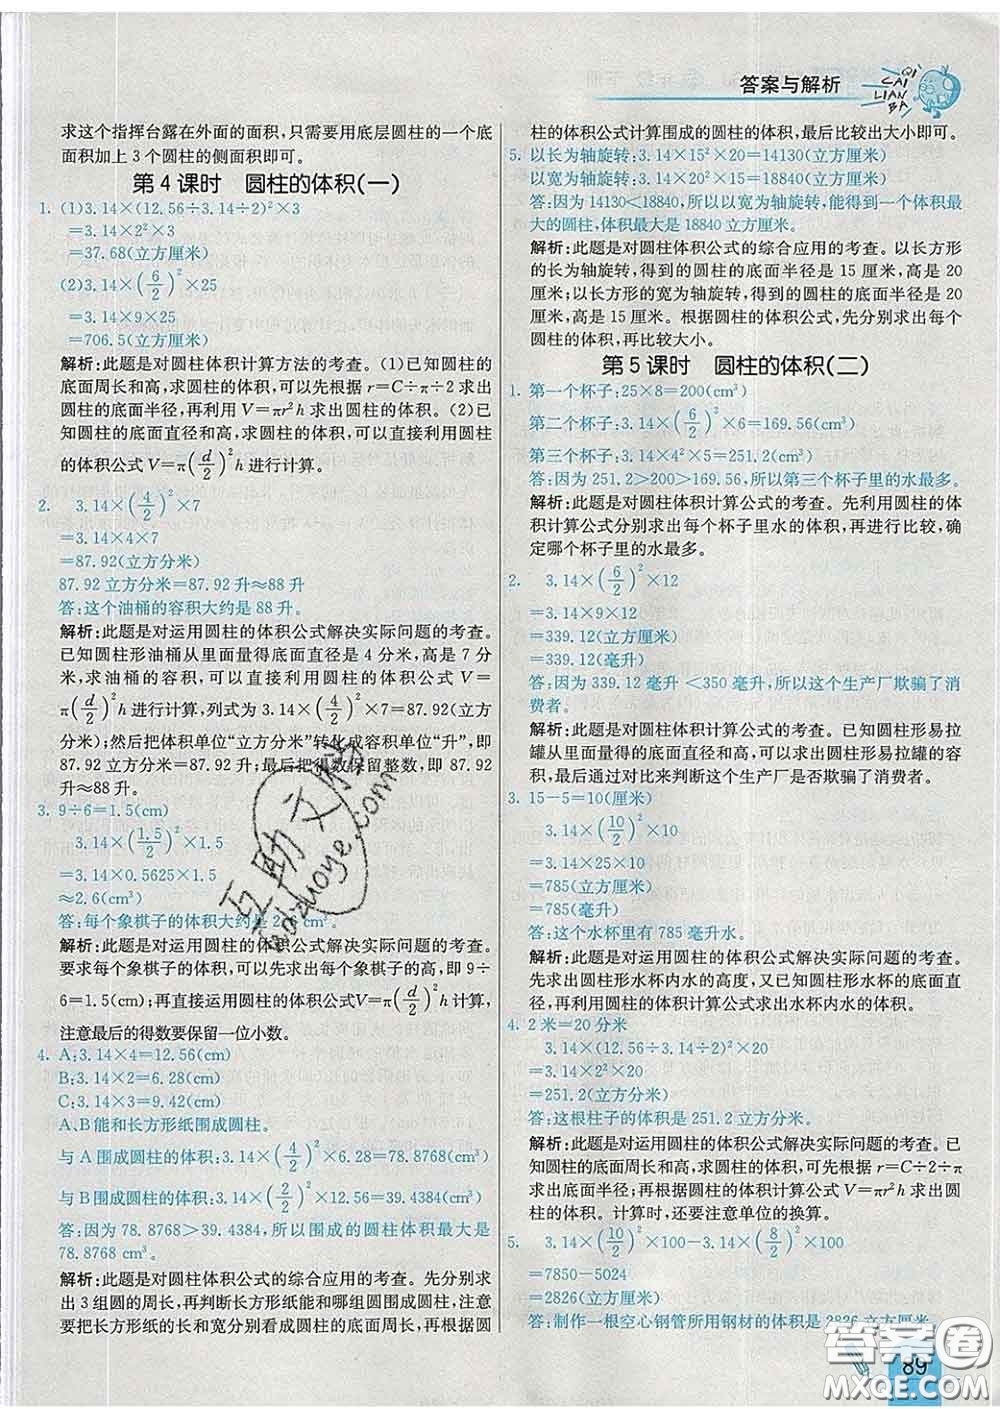 答案与解析
QI CAI LIAN BA
求这个指挥台露在外面的面积,只需要用底层圆柱的一个底
面积加上3个圆柱的侧面积即可。
第4课时 圆柱的体积(一)
1. (1)3.14×(12.56÷3.14÷2)²×3
=3.14×2²×3
=37.68(立方厘米)
(2)3.14×(6/2)²×25
=3.14×9×25
=706.5(立方厘米)
解析:此题是对圆柱体积计算方法的考查。(1)已知圆柱
的底面周长和高,求圆柱的体积,可以先根据r=C÷π÷2求出
圆柱的底面半径,再利用V=πr²h求出圆柱的体积。(2)已
知圆柱的底面直径和高,求圆柱的体积,可以直接利用圆柱
的体积公式V=π(d/2)²h进行计算。
2. 3.14×(4/2)²×7
=3.14×4×7
=87.92(立方分米)
87.92立方分米=87.92升≈88升
答:这个油桶的容积大约是88升。
解析:此题是对运用圆柱的体积公式解决实际问题的考查。
已知圆柱形油桶从里面量得底面直径是4分米,高是7分
米,求油桶的容积,可以直接利用圆柱的体积公式V=
π(d/2)²h进行计算,列式为3.14×(4/2)²×7=87.92(立方
分米);然后把体积单位“立方分米”转化成容积单位“升”,即
87.92立方分米=87.92升;最后把得数保留整数,即87.92
升≈88升。
3. 9÷6=1.5(cm)
3.14×(1.5/2)²×1.5
=3.14×0.5625×1.5
≈2.6(cm³)
答:每个象棋子的体积大约是2.6cm³。
解析:此题是对运用圆柱的体积公式解决实际问题的考查。
要求每个象棋子的体积,可以先求出每个象棋子的高,即9÷
6=1.5(cm);再直接运用圆柱的体积公式V=π(d/2)²h计算,
注意最后的得数要保留一位小数。
4. A:3.14×4=12.56(cm)
B:3.14×2=6.28(cm)
C:3.14×3=9.42(cm)
A、B能和长方形纸围成圆柱。
与A围成圆柱的体积:3.14×(4/2)²×6.28=78.8768(cm³)
与B围成圆柱的体积:3.14×(2/2)²×12.56=39.4384(cm³)
答:因为78.8768>39.4384,所以围成的圆柱体积最大是
78.8768 cm³。
解析:此题是对圆柱体积公式的综合应用的考查。先分别求
出3组圆的周长,再判断长方形纸能和哪组圆围成圆柱,注意
要把长方形纸的长和宽分别看成圆柱的底面周长,再根据圆
柱的体积公式计算围成的圆柱的体积,最后比较出大小即可。
5. 以长为轴旋转:3.14×15²×20=14130(立方厘米)
以宽为轴旋转:3.14×20²×15=18840(立方厘米)
答:因为14130<18840,所以以宽为轴旋转,能得到一个体积
最大的圆柱,体积最大是18840立方厘米。
解析:此题是对圆柱体积公式的综合应用的考查。以长方形
的长为轴旋转,得到的圆柱的底面半径是15厘米,高是20
厘米;以长方形的宽为轴旋转,得到的圆柱的底面半径是20
厘米,高是15厘米。根据圆柱的体积公式,先分别求出每个
圆柱的体积,再比较大小。
第5课时 圆柱的体积(二)
1. 第一个杯子:25×8=200(cm³)
第二个杯子:3.14×(6/2)²×6=169.56(cm³)
第三个杯子:3.14×4²×5=251.2(cm³)
答:因为251.2>200>169.56,所以第三个杯子里的水最多。
解析:此题是对圆柱体积计算公式的考查。先利用圆柱的体
积计算公式分别求出每个杯子里水的体积,再进行比较,确
定哪个杯子里的水最多。
2. 3.14×(6/2)²×12
=3.14×9×12
=339.12(立方厘米)
=339.12(毫升)
答:因为339.12毫升<350毫升,所以这个生产厂欺骗了消
费者。
解析:此题是对圆柱体积计算公式的考查。已知圆柱形易拉
罐从里面量得的底面直径和高,可以求出圆柱形易拉罐的容
积,最后通过对比来判断这个生产厂是否欺骗了消费者。
3. 15-5=10(厘米)
3.14×(10/2)²×10
=3.14×25×10
=785(立方厘米)
=785(毫升)
答:这个水杯里有785毫升水。
解析:此题是对运用圆柱的体积公式解决实际问题的考查。
先求出圆柱形水杯内水的高度,又已知圆柱形水杯的底面直
径,再利用圆柱的体积计算公式求出水杯内水的体积。
4. 2米=20分米
3.14×(12.56÷3.14÷2)²×20
=3.14×2²×20
=251.2(立方分米)
答:这根柱子的体积是251.2立方分米。
解析:此题是对运用圆柱的体积公式解决实际问题的考查。已
知圆柱的底面周长和高,求圆柱的体积,可以先根据r=C÷2÷π
求出圆柱的底面半径;再根据圆柱的体积计算公式V=πr²h
求出圆柱的体积。计算时,还要注意单位的换算。
5. 3.14×(10/2)²×100-3.14×(8/2)²×100
=7850-5024
=2826(立方厘米)
答:制作一根空心钢管所用钢材的体积是2826立方厘米。
89
互助文档
答案圈
MXQE.COM